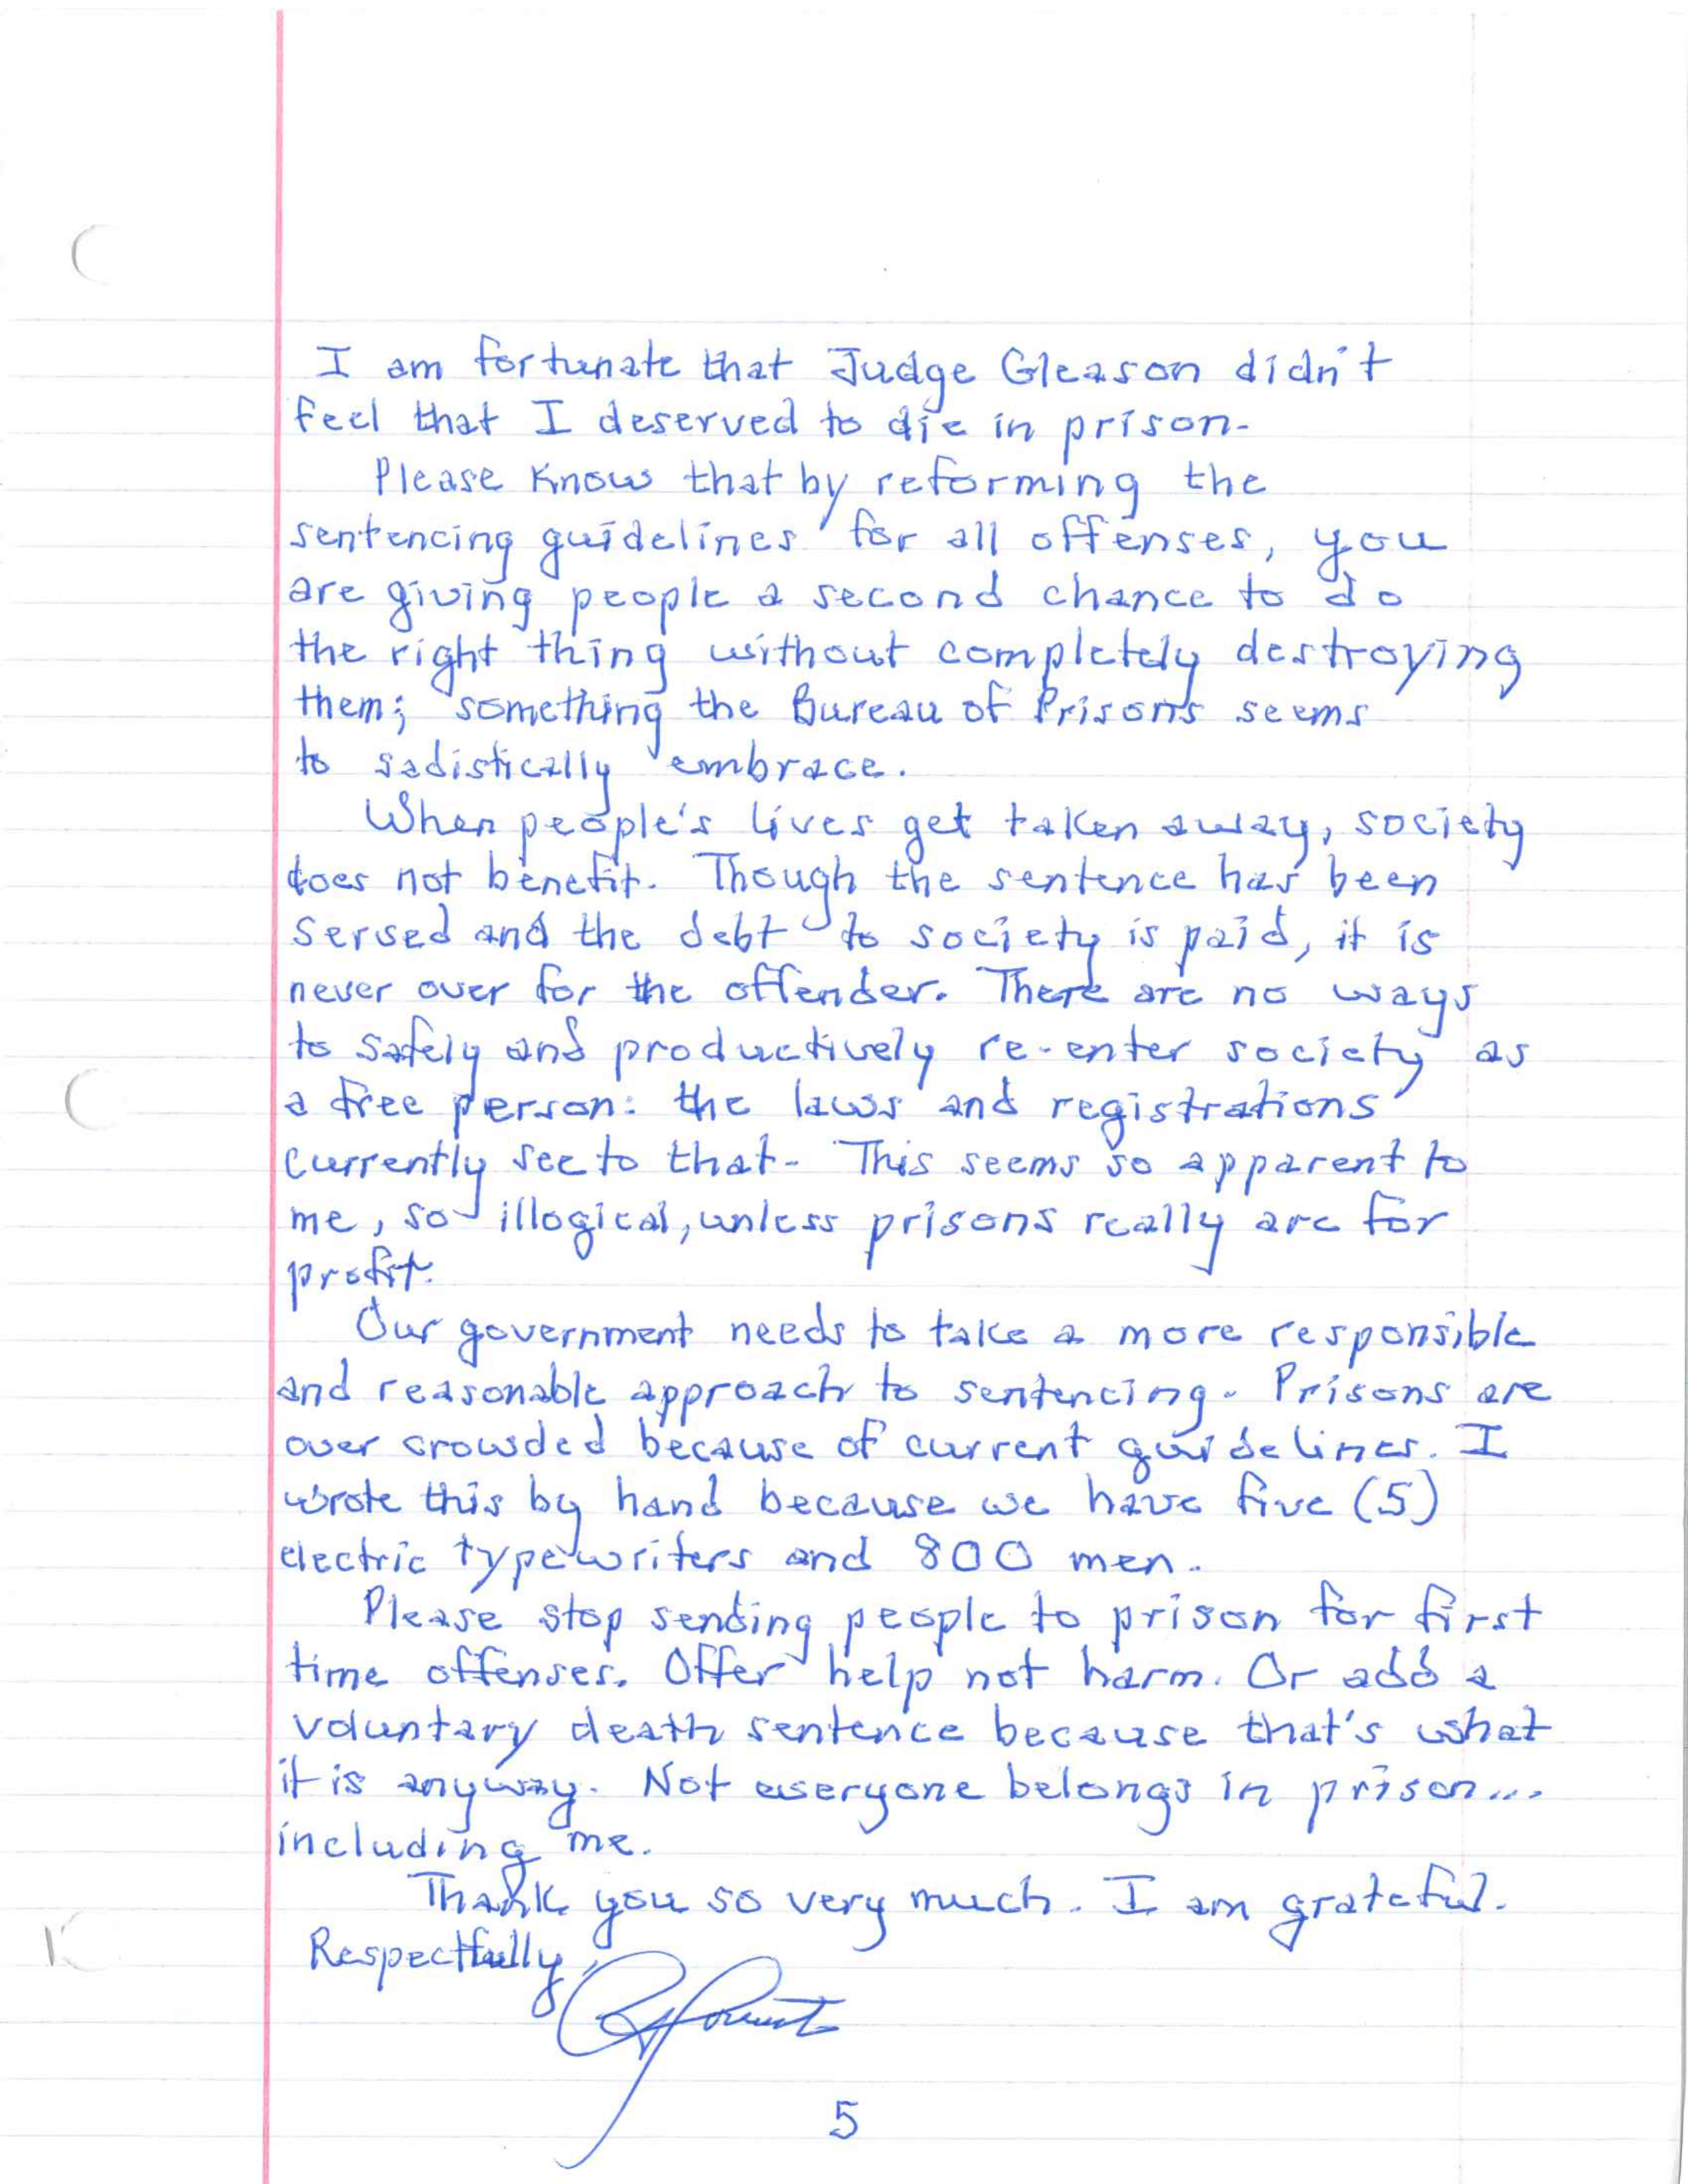 I am fortunate that Judge Gleason didn't
feel that I deserved to die in prison.
Please Know that by reforming the
sentencing guidelines for all offenses, you
are giving people a second chance to do
the right thing without completely destroying
them; something the Bureau of Prisons seems
to sadistically embrace.
When people's lives get taken away, society
does not benefit. Though the sentence has been
served and the debt to society is paid, it is
never over for the offender. There are no ways
to safely and productively re-enter society as
a free person: the laws and registrations
currently see to that. This seems so apparent to
me, so illogical, unless prisons really are for
profit.
Our government needs to take a more responsible
and reasonable approach to sentencing. Prisons are
over crowded because of current guidelines. I
wrote this by hand because we have five (5)
electric typewriters and 800 men.
Please stop sending people to prison for first
time offenses. Offer help not harm. Or add a
voluntary death sentence because that's what
it is anyway. Not everyone belongs in prison...
including me.
Thank you so very much. I am grateful.
Respectfully,
5